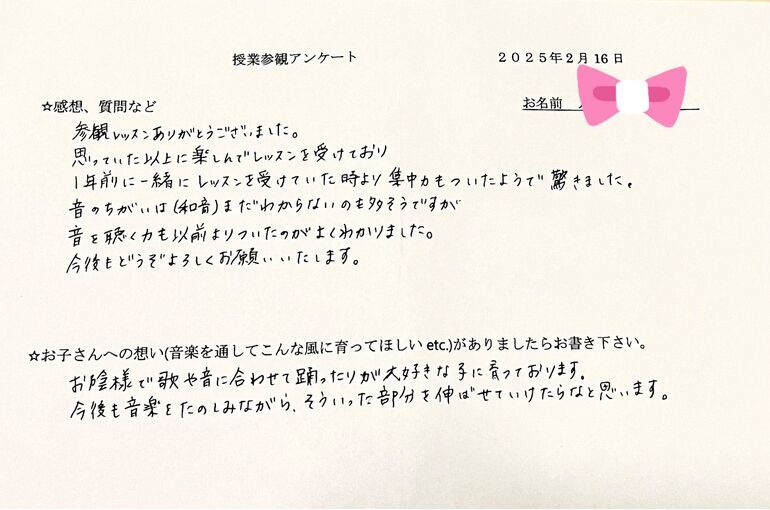 授業参観アンケート　２０２５年２月16日
お名前
☆感想、質問など
参観レッスンありがとうございました。
思っていた以上に楽しんでレッスンを受けており
１年前に一緒にレッスンを受けていた時より集中力もついたようで驚きました。
音のちがいは(和音)まだわからないのも多そうですが
音を聴く力も以前よりついたのがよくわかりました。
今後もどうぞよろしくお願いいたします。
☆お子さんへの想い(音楽を通してこんな風に育ってほしいetc.)がありましたらお書き下さい。
お陰様で歌や音に合わせて踊ったりが大好きな子に育っております。
今後も音楽をたのしみながら、そういった部分を伸ばせていけたらなと思います。